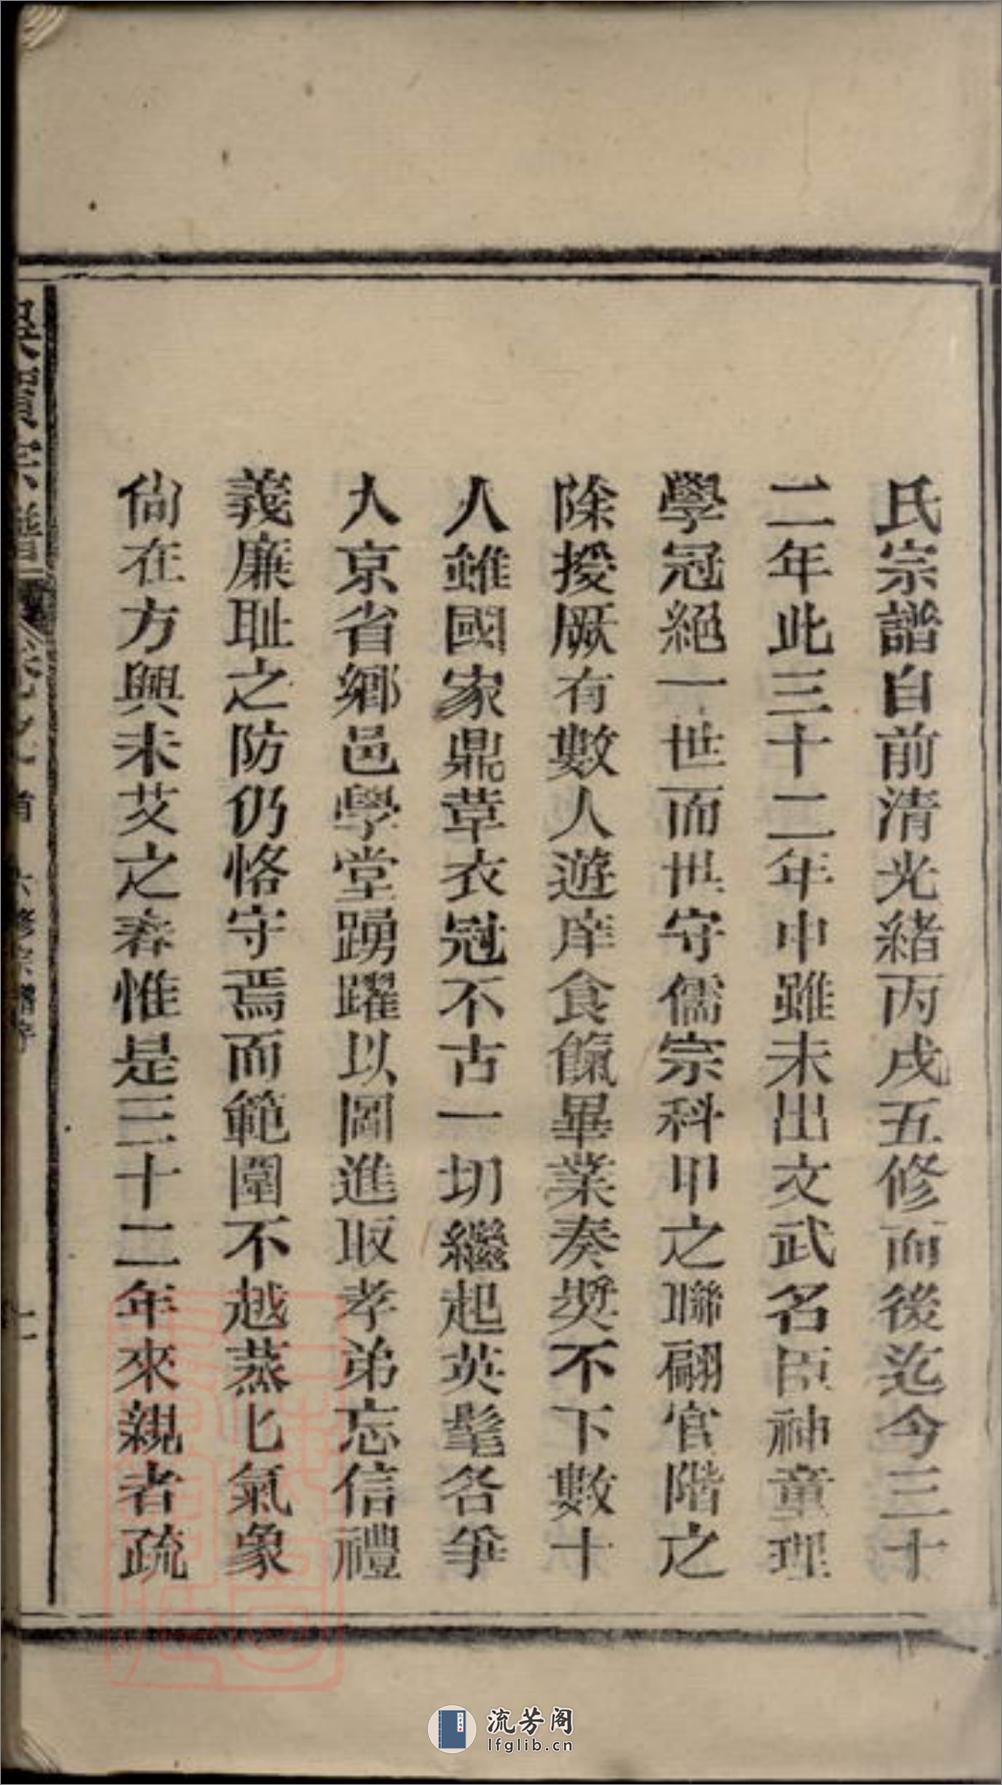 氏宗譜自前清光緒丙戌五修而後迄今三十
二年此三十二年中雖未出文武名臣神童理
學冠絕一世而世守儒宗科甲之聯翩官階之
除授厥有數人遊庠食餼畢業奏獎不下數十
人雖國家鼎革衣冠不古一切繼起英髦各爭
入京省鄉邑學堂踴躍以圖進取孝弟忘信禮
義廉耻之防仍恪守焉而範圍不越蒸匕氣象
尙在方興未艾之春惟是三十二年來親者疏
宗譜 卷之首 六修宗譜序
流芳阁
lfglib.cn